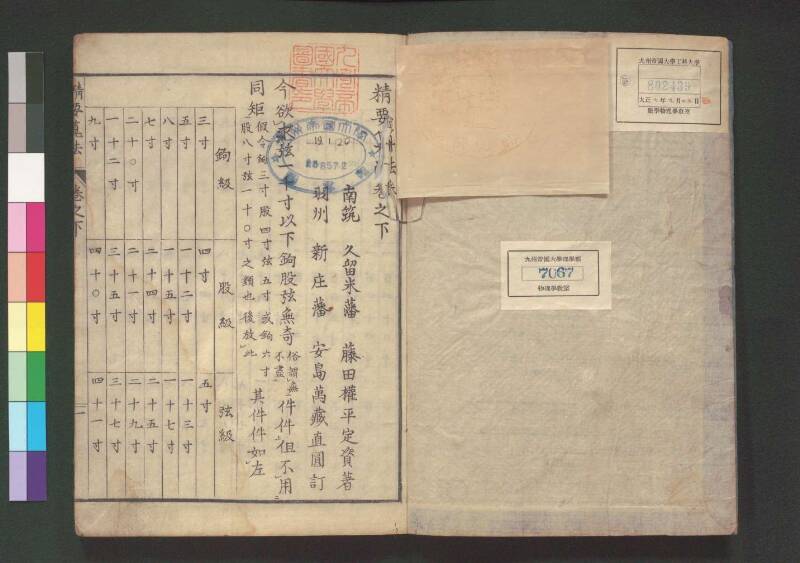 精要算法卷之下
南筑 久留米藩 藤田權平定資著
羽州 新庄藩 安島萬藏直圓訂
今欲求弦一千寸以下鉤股弦無奇俗謂無不盡件件但不用
同矩假令鉤三寸股四寸弦五寸或鉤六寸股八寸弦一十〇寸之類也後放此其件件如左
鉤級 股級 弦級
三寸 四寸 五寸
五寸 一十二寸 一十三寸
八寸 一十五寸 一十七寸
七寸 二十四寸 二十五寸
二十〇寸 二十一寸 二十九寸
一十二寸 三十五寸 三十七寸
九寸 四十〇寸 四十一寸
精要算法 卷之下 一
九州帝國大學工科大學
802439
九州帝國大學理學部
7067
物理學教室